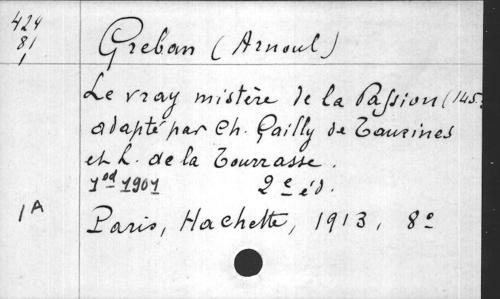 424
81
1
Greban (Arnoul)
Le vray mistère de la Passion (145
adapté par Ch. Gailly de Taurines
et L. de la Tourrasse.
1ed 1901 2e éd.
1A
Paris, Hachette, 1913, 8o